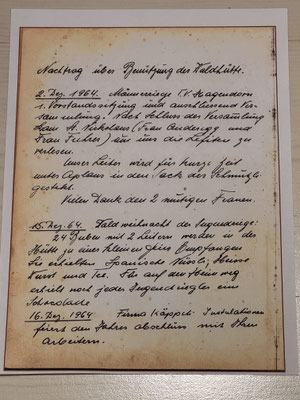 Nachtrag über Benützung der Waldhütte.
2. Dez. 1964. Männerriege TV. Hagendorn
1. Vorstandssitzung und anschliessend Ver-
sammlung. Nach Schluss der Versamlung
kam St. Nikolaus (Frau und
Frau ) um uns die Lefiten zu
verlesen.
Unser Leiter wird für kurze Zeit
unter Aplaus in den Sack des Schmutzli
gesteckt.
Vielen Dank den 2 mutigen Frauen.
15. Dez. 64. Waldweihnacht der Jugendriege:
24 Buben mit 2 Leitern werden in der
Hütte zu einer kleinen Feier Empfangen
Sie erhielten Spanische Nüssli, Heisse
Wurst und Tee. Ehe auf den Heimweg
erhielt noch jeder Jugendriegler eine
Schocolade
16. Dez. 1964 Firma Käppeli Instalationen
feiert den Jahres abschluss mit Ihren
Arbeitern.